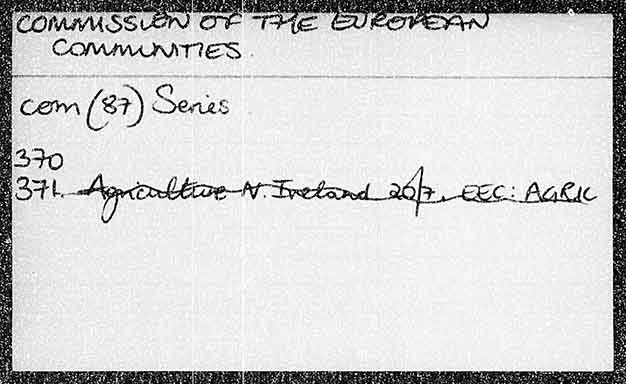 COMMISSION OF THE EUROPEAN
COMMUNITIES.
com (87) Series
370
371. Agriculture N. Ireland 20/7. EEC: AGRIC